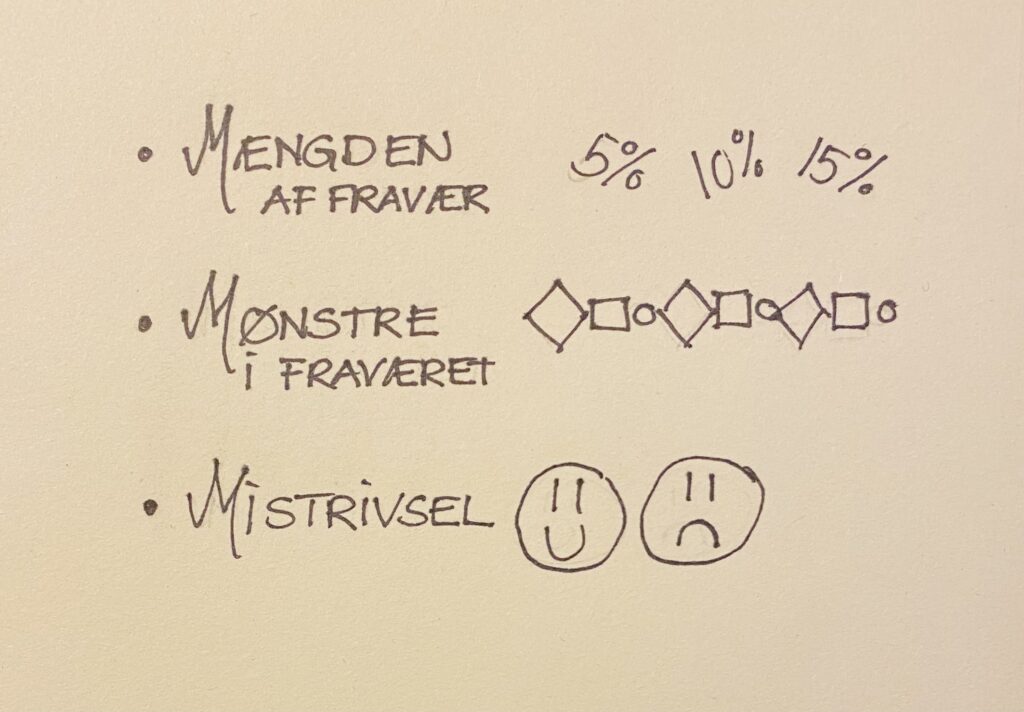 • MÆNGDEN 5% 10% 15%
AF FRAVÆR
• MØNSTRE
i FRAVÆRET
• MiSTRiVSEL